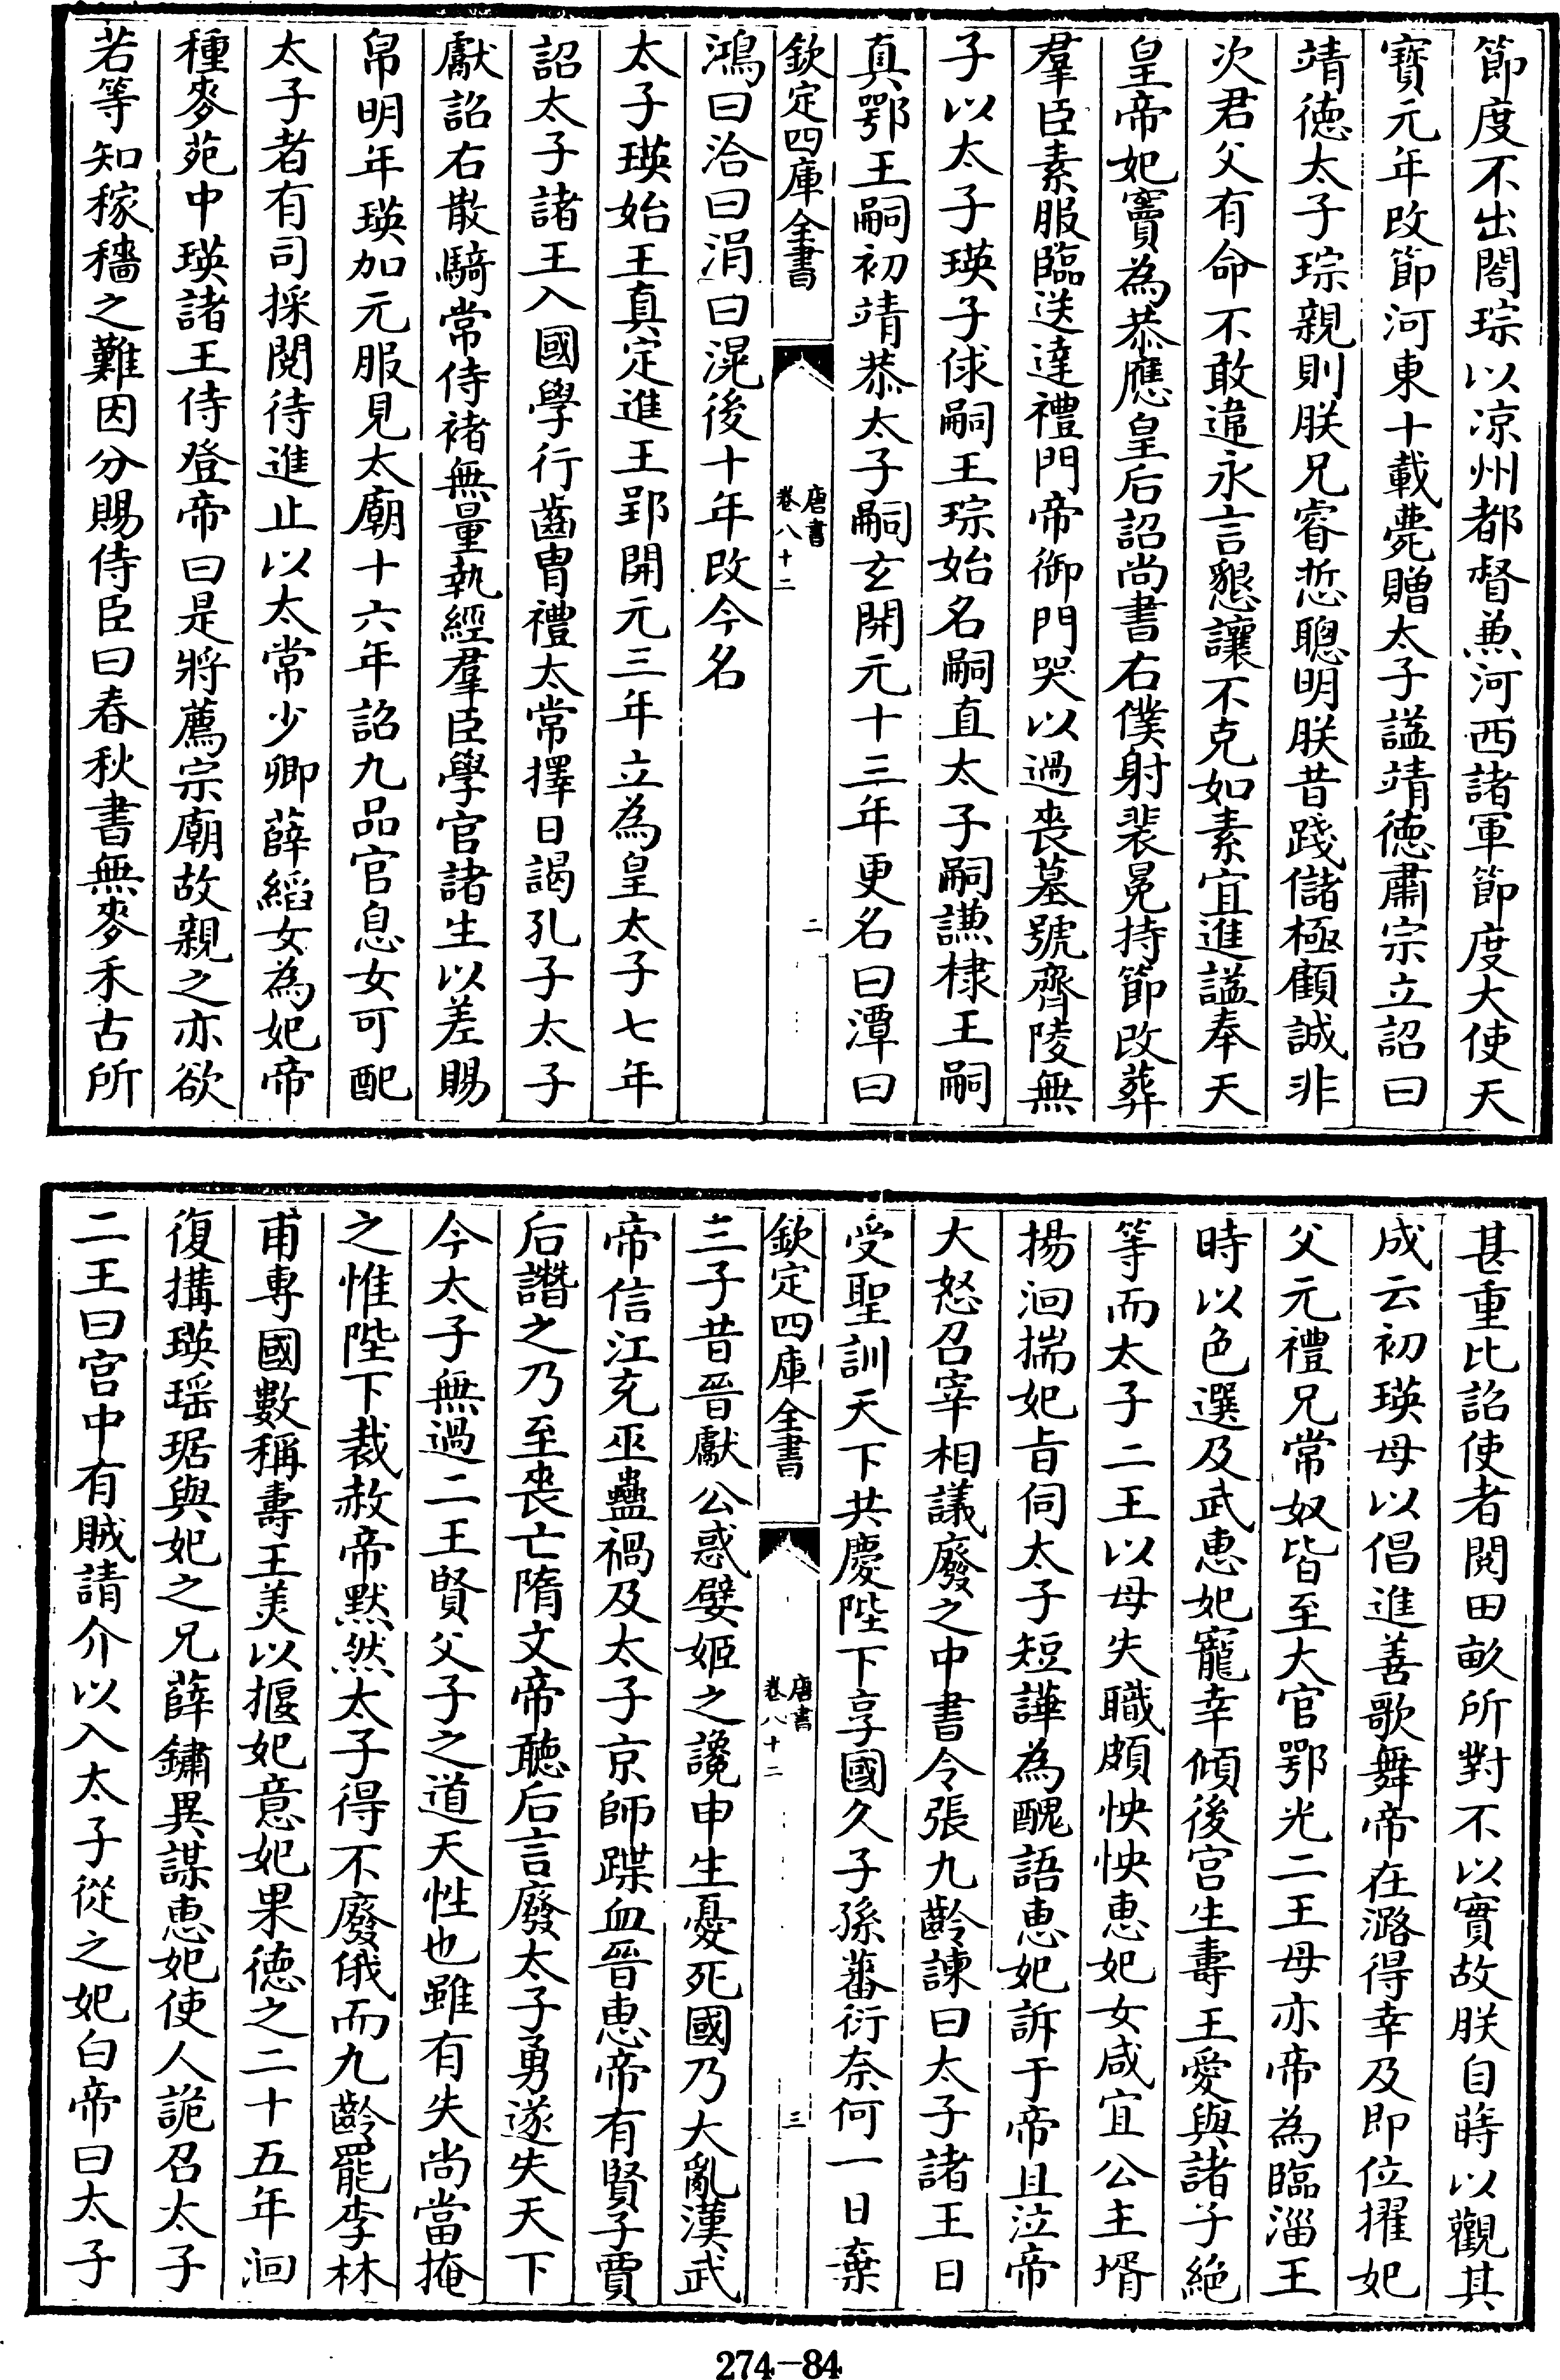 節度不出閤琮以凉州都督兼河西諸軍節度大使天
寶元年改節河東十載薨贈太子謚靖徳肅宗立詔曰
靖徳太子琮親則朕兄睿悊聰明朕昔踐儲極顧誠非
次君父有命不敢違永言懇讓不克如素宜進謚奉天
皇帝妃竇為恭應皇后詔尚書右僕射裴冕持節改葬
羣臣素服臨送達禮門帝御門哭以過喪墓號齊陵無
子以太子瑛子俅嗣王琮始名嗣直太子嗣謙棣王嗣
真鄂王嗣初靖恭太子嗣玄開元十三年更名曰潭曰
欽定四庫全書
唐書
卷八十二
二
鴻曰洽曰涓曰滉後十年改今名
太子瑛始王真定進王郢開元三年立為皇太子七年
詔太子諸王入國學行齒胄禮太常擇日謁孔子太子
獻詔右散騎常侍褚無量執經羣臣學官諸生以差賜
帛明年瑛加元服見太廟十六年詔九品官息女可配
太子者有司採閲待進止以太常少卿薛縚女為妃帝
種麥苑中瑛諸王侍登帝曰是將薦宗廟故親之亦欲
若等知稼穡之難因分賜侍臣曰春秋書無麥禾古所
甚重比詔使者閲田畝所對不以實故朕自蒔以觀其
成云初瑛母以倡進善歌舞帝在潞得幸及即位擢妃
父元禮兄常奴皆至大官鄂光二王母亦帝為臨淄王
時以色選及武惠妃寵幸傾後宫生壽王愛與諸子絶
等而太子二王以母失職頗怏怏惠妃女咸宜公主壻
揚洄揣妃㫖伺太子短譁為醜語惠妃訴于帝且泣帝
大怒召宰相議廢之中書令張九齡諫曰太子諸王日
受聖訓天下共慶陛下享國久子孫蕃衍奈何一日棄
欽定四庫全書
唐書
卷八十二
三
三子昔晉獻公惑嬖姬之讒申生憂死國乃大亂漢武
帝信江充巫蠱禍及太子京師蹀血晉惠帝有賢子賈
后譖之乃至喪亡隋文帝聽后言廢太子勇遂失天下
今太子無過二王賢父子之道天性也雖有失尚當掩
之惟陛下裁赦帝黙然太子得不廢俄而九齡罷李林
甫專國數稱壽王美以揠妃意妃果徳之二十五年洄
復搆瑛瑶琚與妃之兄薛鏽異謀惠妃使人詭召太子
二王曰宫中有賊請介以入太子從之妃白帝曰太子
274-84